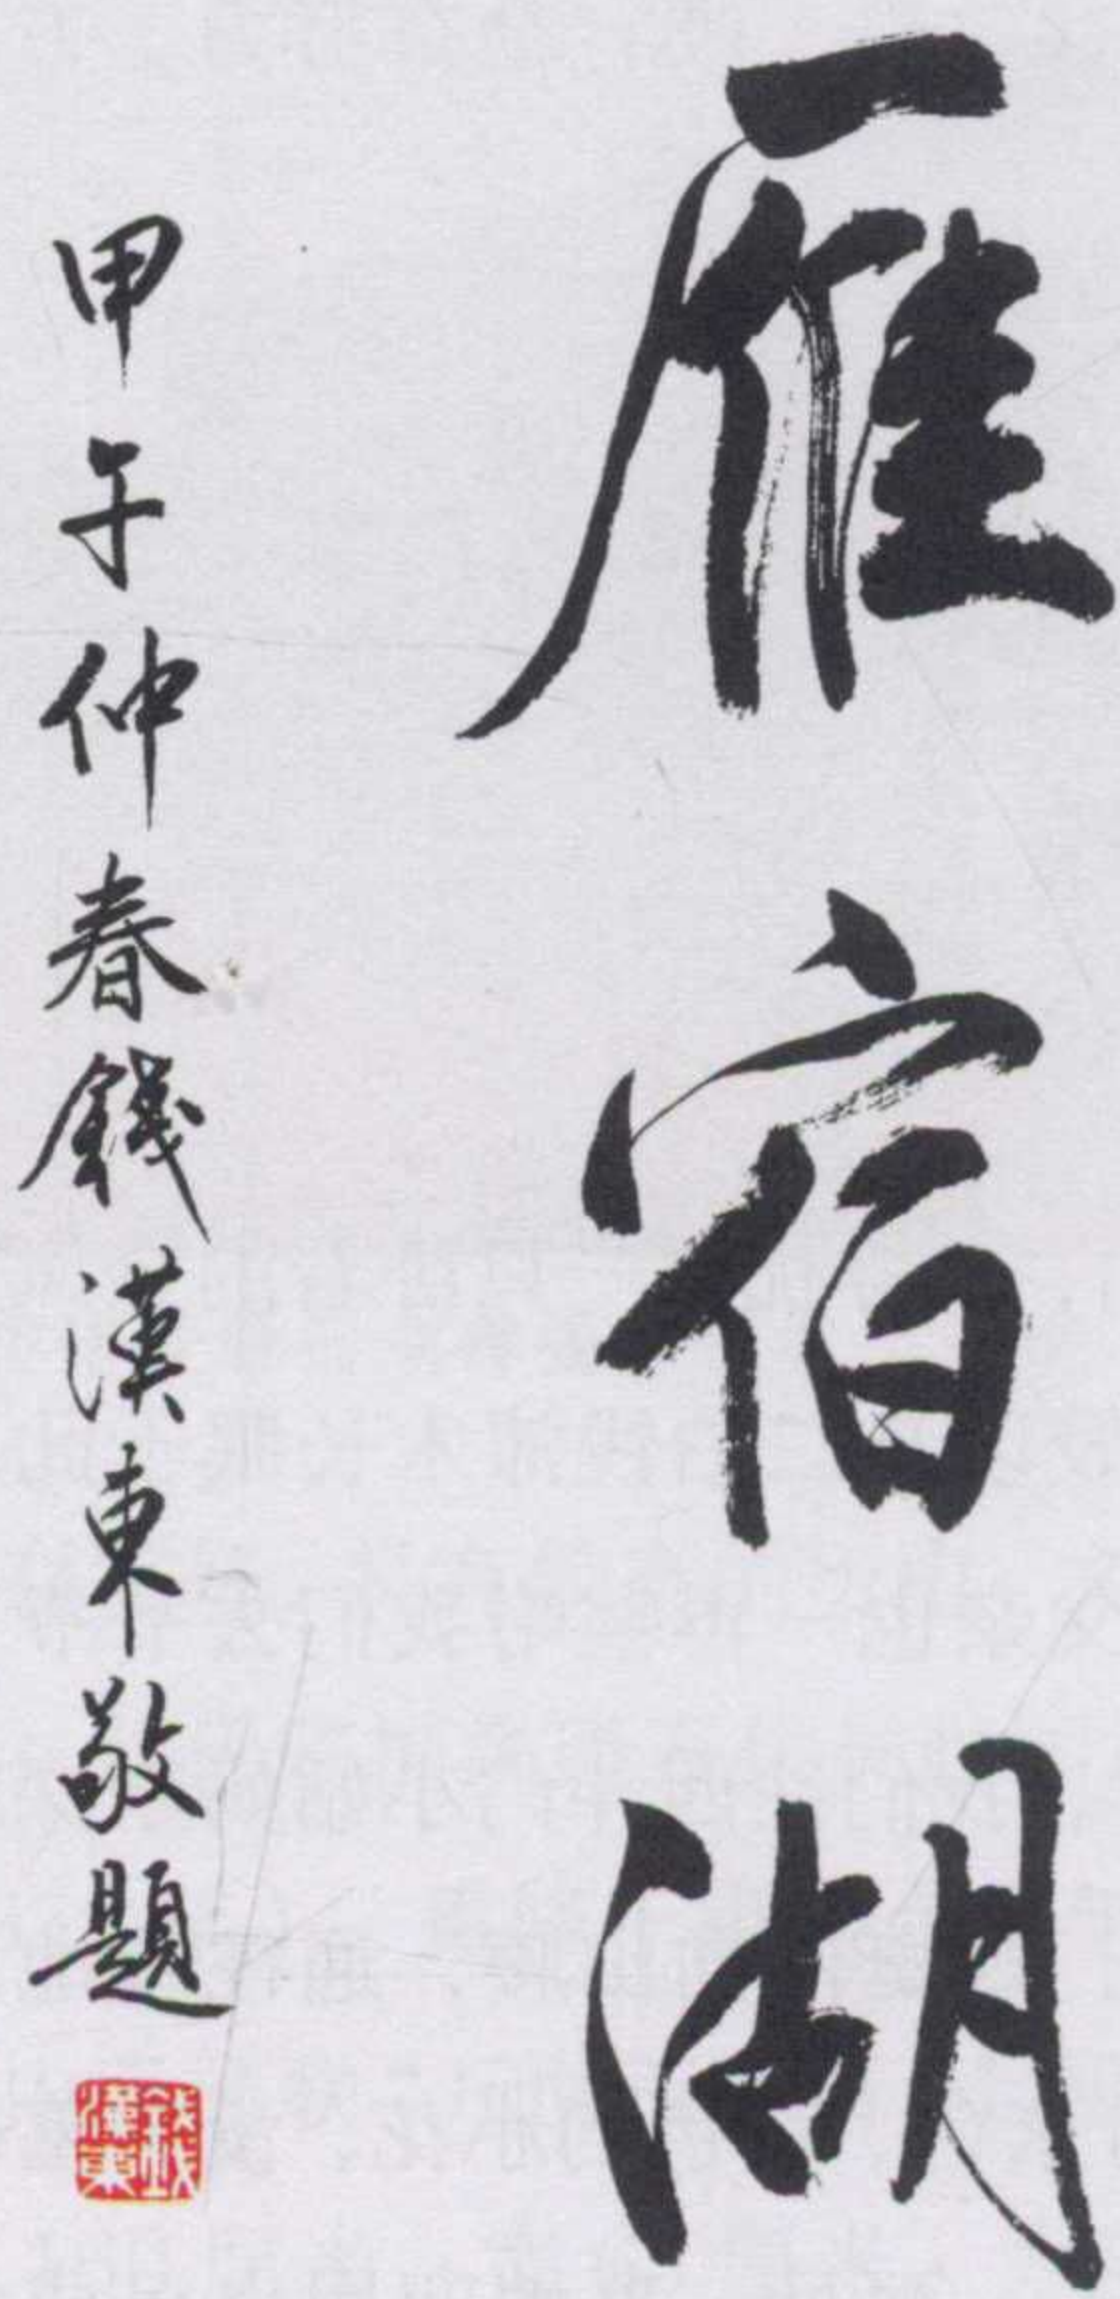 雁宿湖
甲午仲春錢漢東敬題
錢漢東